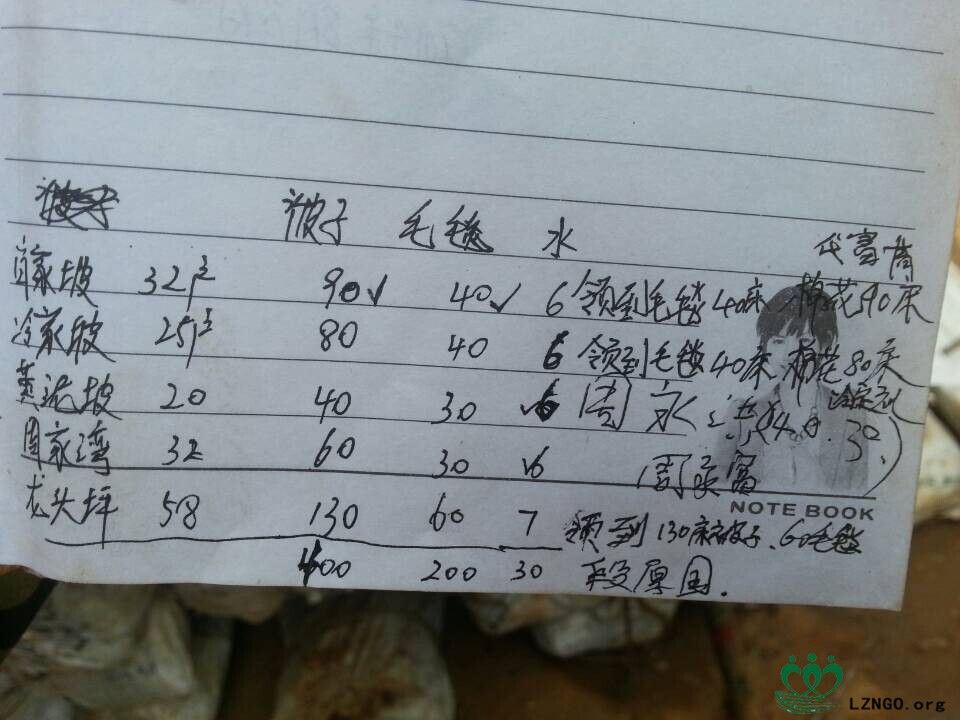 被子 毛毯 水
代富商
家坡 32户 90✓ 40✓ 6 领到毛毯40床 棉花90床
冷家坡 25户 80 40 6 领到毛毯40床 棉花80床
坡 20 40 30 6 周永
周家湾 32 60 30 6 周永富
龙头坪 58 130 60 7 领到130床被子.60毛毯
400 200 30 段原国.
NOTE BOOK
LZNGO.org